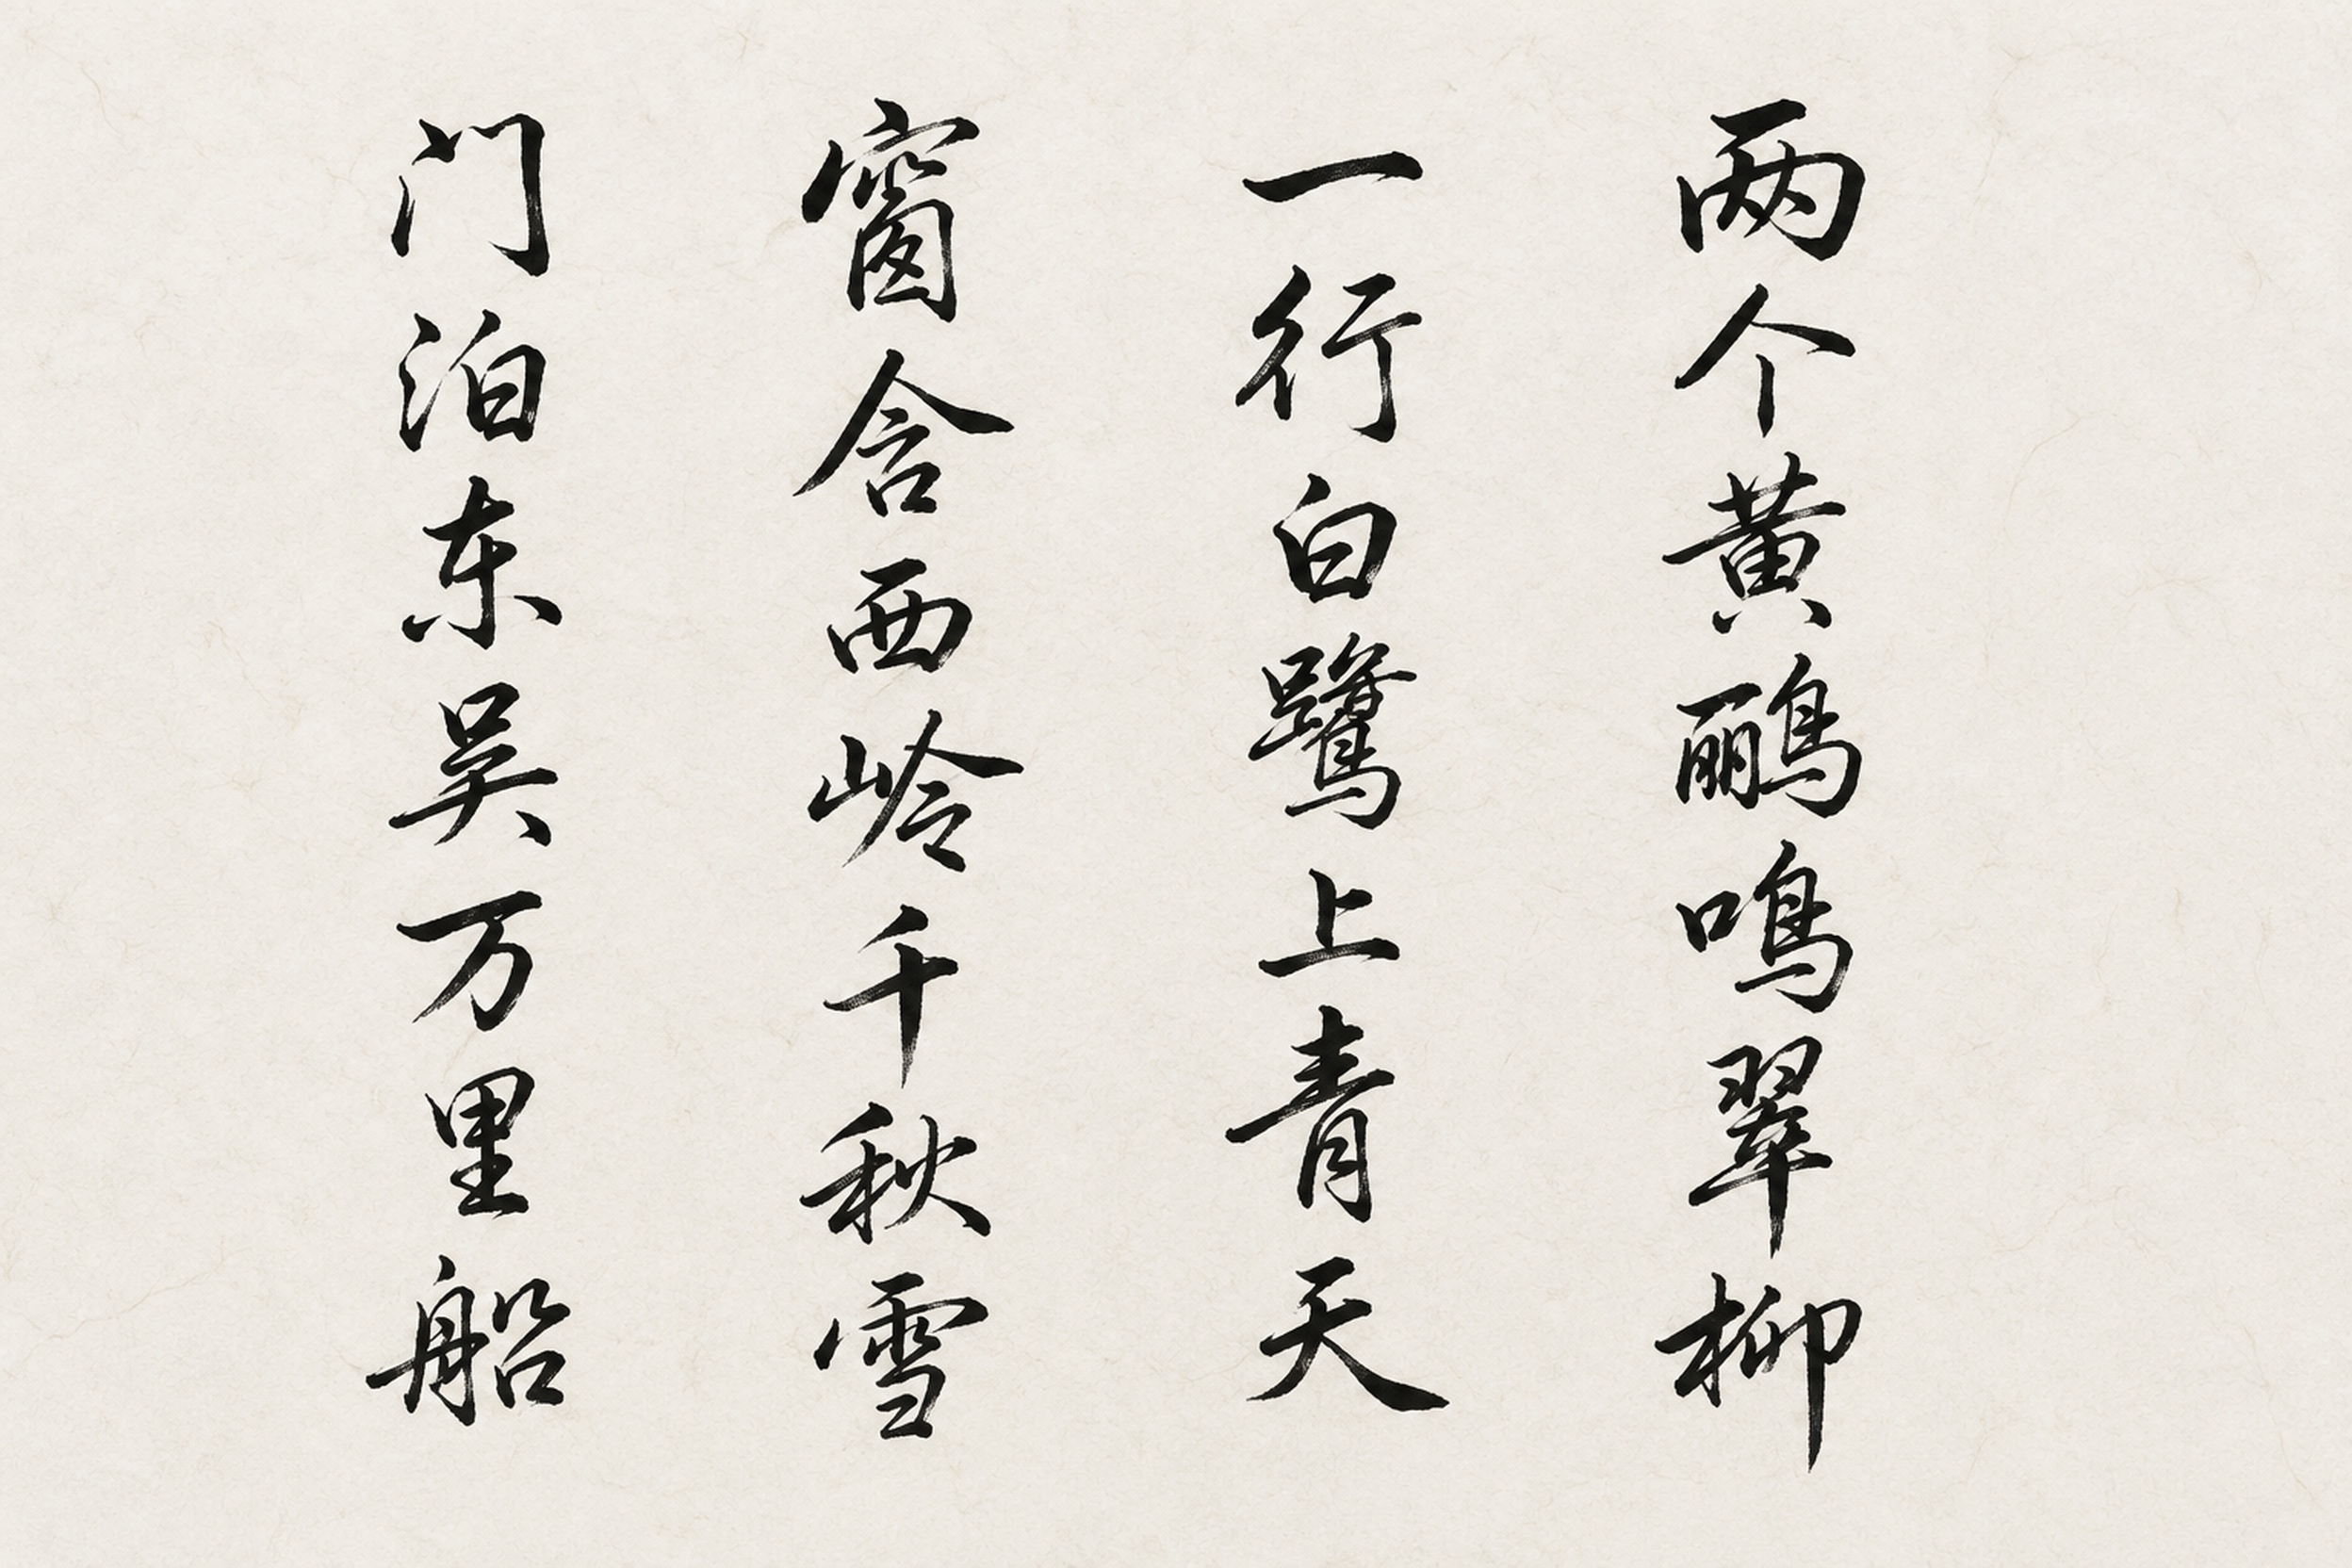 两个黄鹂鸣翠柳
一行白鹭上青天
窗含西岭千秋雪
门泊东吴万里船